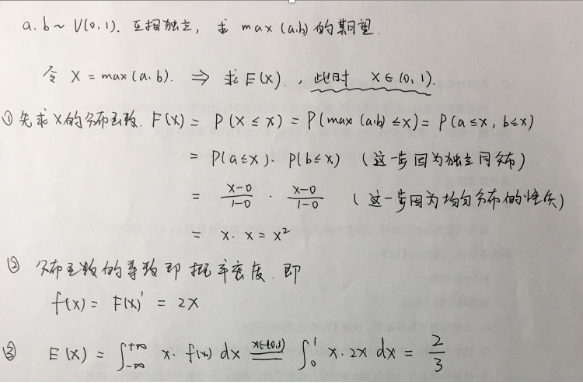 a.b ~ U(0,1). 互相独立, 求 max(a.b)的期望.
令 X = max(a.b). ⇒ 求 E(X), 此时 X∈(0,1).
① 先求X的分布函数. F(X) = P(X≤x) = P(max(a.b)≤x) = P(a≤x, b≤x)
= P(a≤x). P(b≤x) (这一步因为独立同分布)
= \frac{x-0}{1-0} · \frac{x-0}{1-0} (这一步因为均匀分布的性质)
= x. x = x²
② 分布函数的导数即概率密度. 即
f(x) = F(x)' = 2x
③ E(X) = ∫_{-∞}^{+∞} x. f(x) dx \xlongequal{x∈(0,1)} ∫_0^1 x. 2x dx = \frac{2}{3}